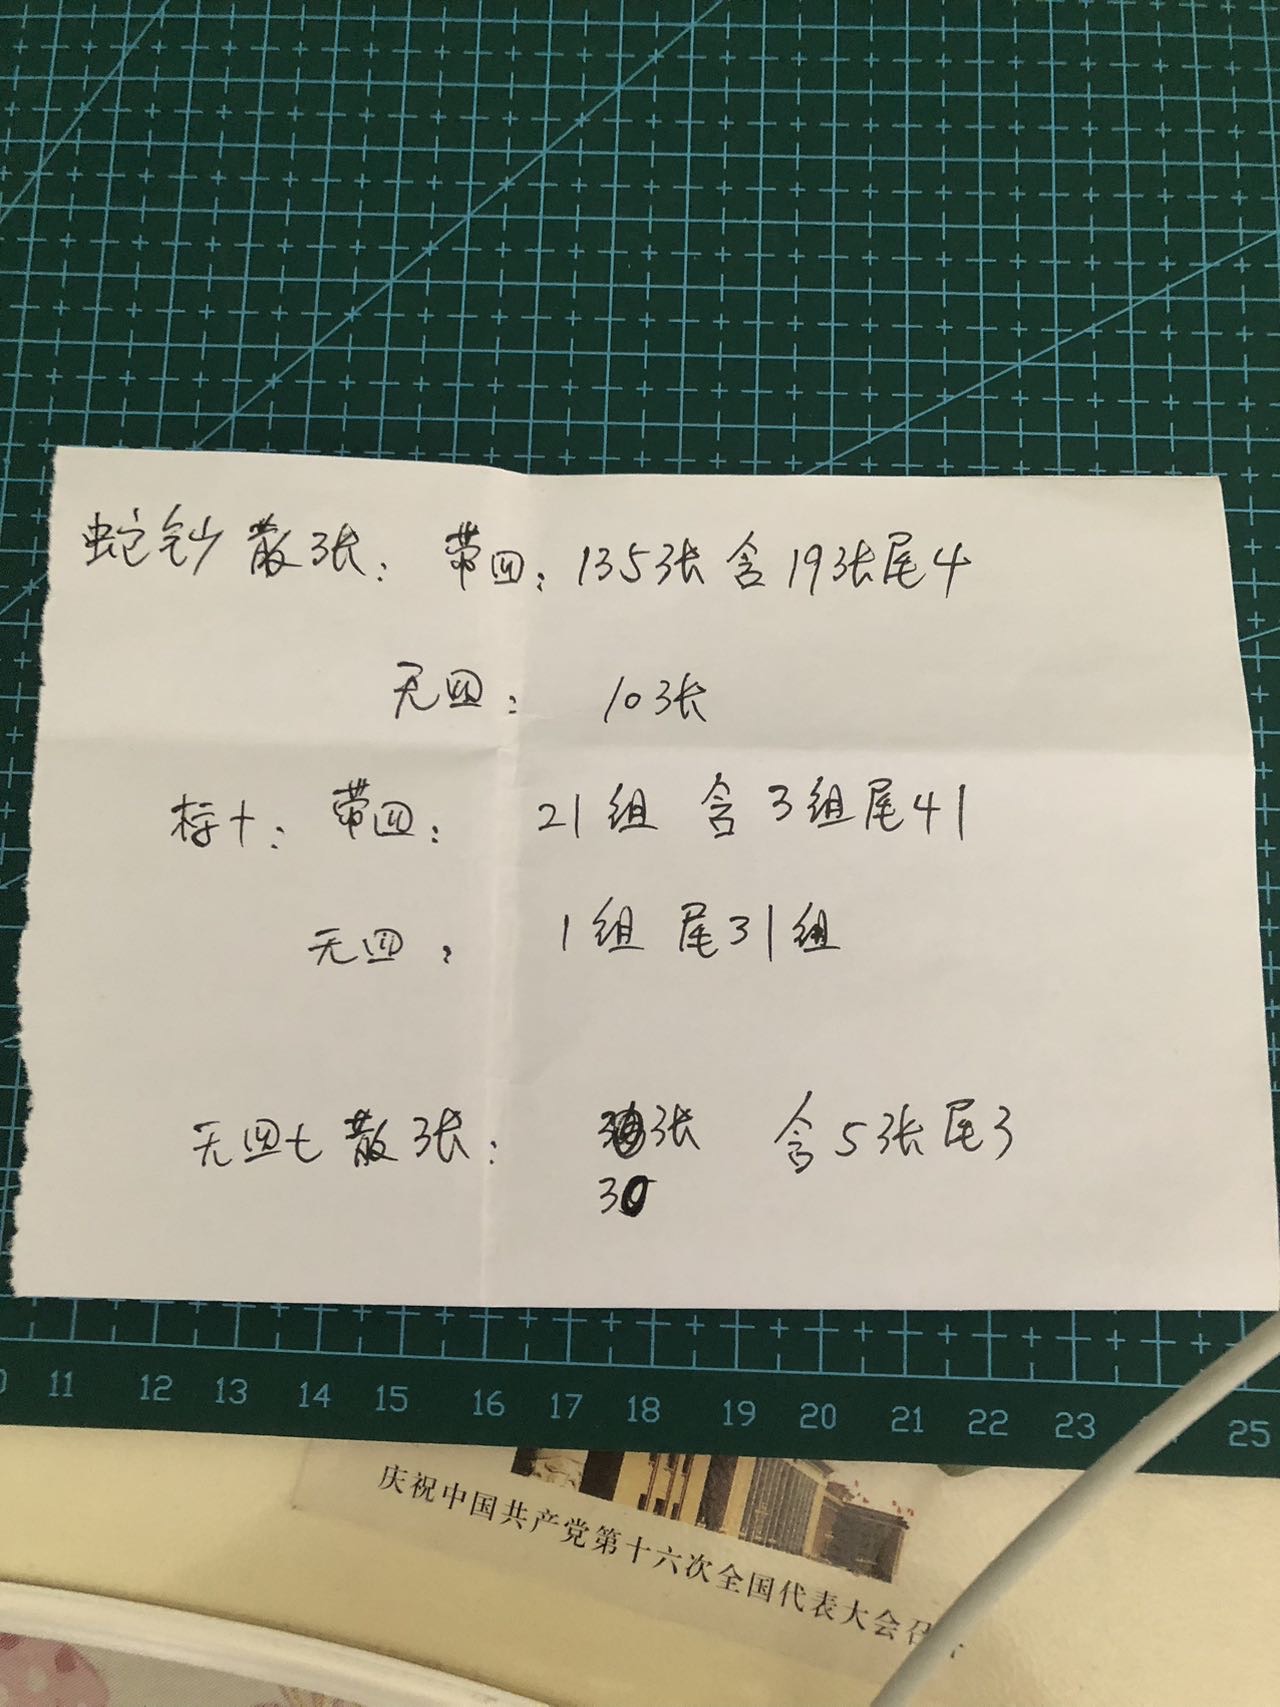 蛇钞散张：带四：135张 含19张尾4
无四：10张
标十：带四：21组 含3组尾41
无四：1组 尾31组
无四七散张：张 含5张尾3
30
11 12 13 14 15 16 17 18 19 20 21 22 23 25
庆祝中国共产党第十六次全国代表大会召